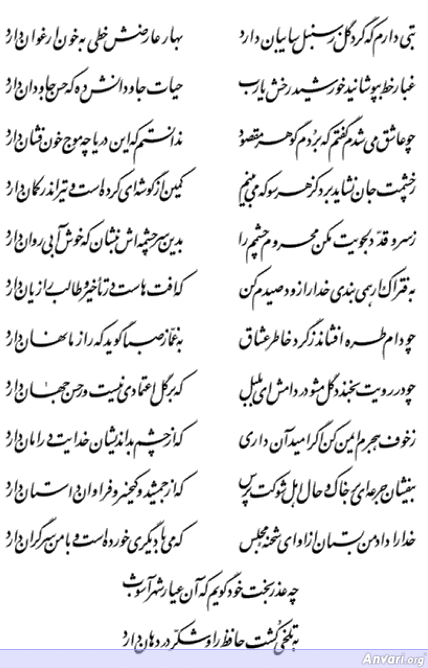 بتی دارم که گرد گل ز سنبل سایبان دارد بهار عارضش خطی به خون ارغوان دارد
غبار خط بپوشانید خورشید رخش یا رب حیات جاودانش ده که حسن جاودان دارد
چو عاشق می‌شدم گفتم که بردم گوهر مقصود ندانستم که این دریا چه موج خون فشان دارد
ز چشمت جان نشاید برد کز هر سو که می‌بینم کمین از گوشه‌ای کرده‌است و تیر اندر کمان دارد
ز سرو قد دلجویت مکن محروم چشمم را بدین سرچشمه‌اش بنشان که خوش آبی روان دارد
به فتراک ار همی‌بندی خدا را زود صیدم کن که آفت‌هاست در تاخیر و طالب را زیان دارد
چو دام طره افشاند ز گرد خاطر عشاق به غماز صبا گوید که راز ما نهان دارد
چو در رویت بخندد گل مشو در دامش ای بلبل که بر گل اعتمادی نیست ور حسن جهان دارد
ز خوف هجرم ایمن کن اگر امید آن داری که از چشم بداندیشان خدایت در امان دارد
بیفشان جرعه‌ای بر خاک و حال اهل شوکت پرس که از جمشید و کیخسرو فراوان داستان دارد
خدا را داد من بستان از او ای شحنه مجلس که می با دیگری خورده‌است و با من سر گران دارد
چه عذر بخت خود گویم که آن عیار شهرآشوب
به تلخی کشت حافظ را و شکر در دهان دارد
Anvari.org